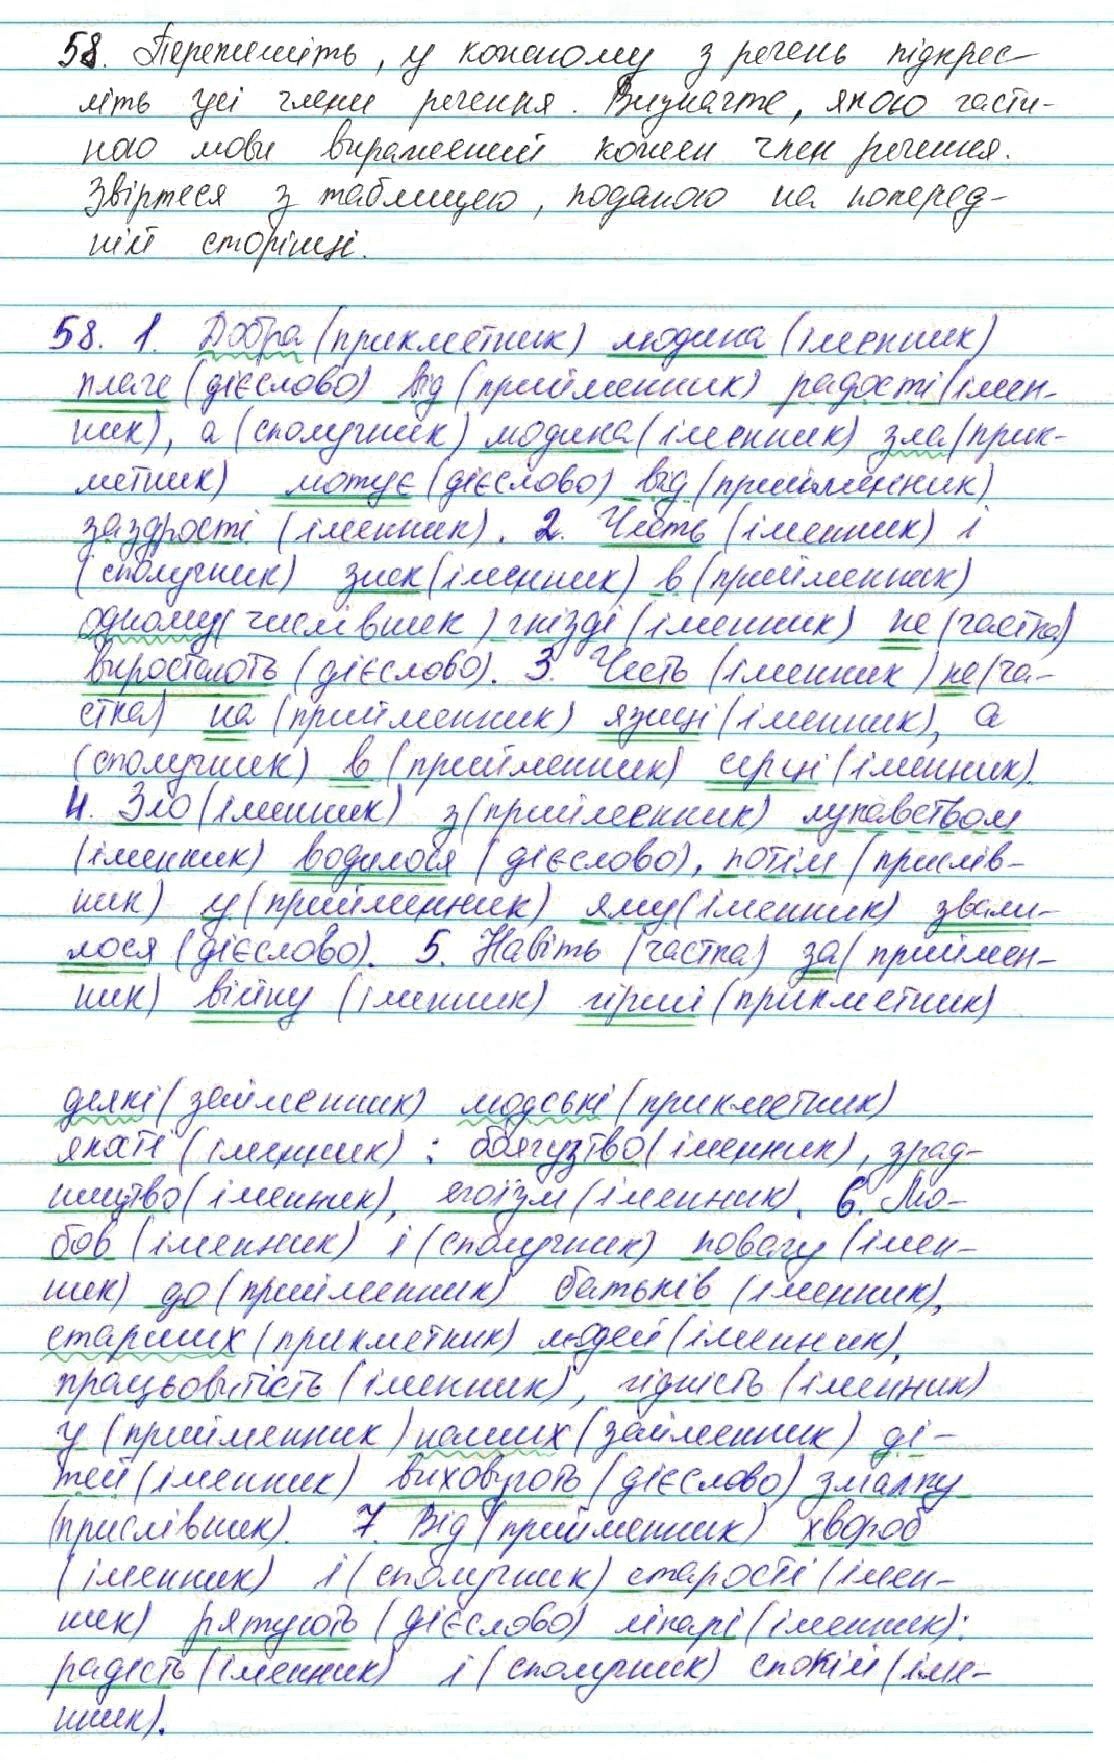 58. Перепишіть, у кожному з речень підкрес-
літь усі члени речення. Визначте, якою части-
ною мови виражений кожен член речення.
Звіртеся з таблицею, поданою на поперед-
ній сторінці.
58. 1. Добра (прикметник) людина (іменник)
плаче (дієслово) від (прийменник) радості (імен-
ник), а (сполучник) людина (іменник) зла (прик-
метник) лютує (дієслово) від (прийменник)
заздрості (іменник). 2. Честь (іменник) і
(сполучник) зиск (іменник) в (прийменник)
одному (числівник) гнізді (іменник) не (частка)
виростають (дієслово). 3. Честь (іменник) не (ча-
стка) на (прийменник) язиці (іменник), а
(сполучник) в (прийменник) серці (іменник).
4. Зло (іменник) з (прийменник) лукавством
(іменник) водилося (дієслово), потім (прислів-
ник) у (прийменник) яму (іменник) звали-
лося (дієслово). 5. Навіть (частка) за (приймен-
ник) війну (іменник) гірші (прикметник)
деякі (займенник) людські (прикметник)
якості (іменник) : боягузтво (іменник), зрад-
ництво (іменник), егоїзм (іменник). 6. Лю-
бов (іменник) і (сполучник) повагу (імен-
ник) до (прийменник) батьків (іменник),
старших (прикметник) людей (іменник),
працьовитість (іменник), гідність (іменник)
у (прийменник) наших (займенник) ді-
тей (іменник) виховують (дієслово) змалку
(прислівник). 7. Від (прийменник) хвороб
(іменник) і (сполучник) старості (імен-
ник) рятують (дієслово) лікарі (іменник):
радість (іменник) і (сполучник) спокій (іме-
нник).